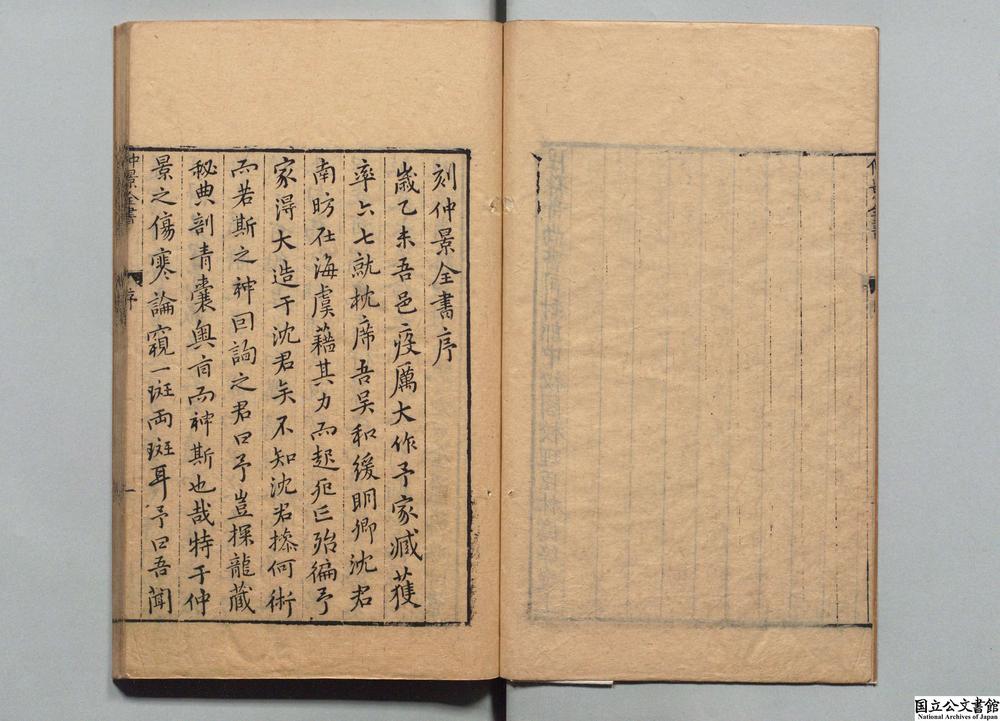 刻仲景全書序
歲乙未吾邑疫厲大作予家臧獲
率六七就枕席吾吳和緩明卿沈君
南昉在海虞藉其力而起死亡殆徧予
家得大造于沈君矣不知沈君操何術
而若斯之神囘詢之君曰予豈探龍藏
秘典剖青囊奧旨而神斯也哉特于仲
景之傷寒論窺一斑兩斑耳予曰吾聞
仲景全書
序
一
国立公文書館
National Archives of Japan